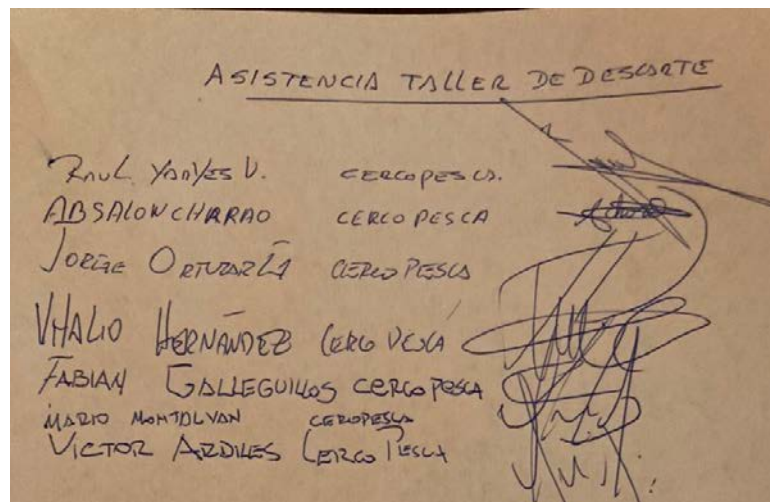 ASISTENCIA TALLER DE DESCARTE
RAUL YAÑES V. CERCOPESCA.
ABSALON CHARAO CERCO PESCA
JORGE CERCO PESCA
VITALIO HERNÁNDEZ CERCO PESCA
FABIAN GALLEGUILLOS CERCO PESCA
MARIO MONTALVAN CERCOPESCA
VICTOR ARDILES CERCO PESCA